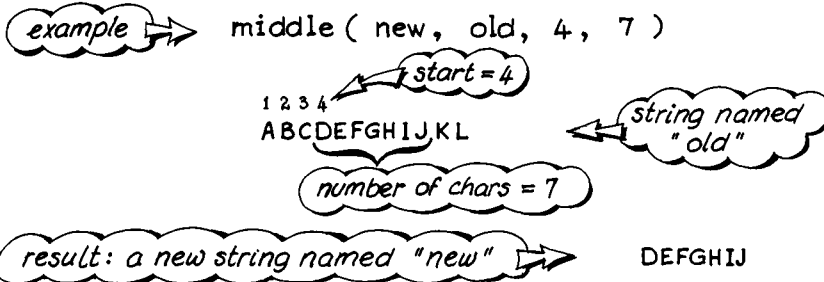 example middle ( new, old, 4, 7 )
start = 4
1 2 3 4
ABCDEFGHIJKL
string named "old"
number of chars = 7
result: a new string named "new" DEFGHIJ